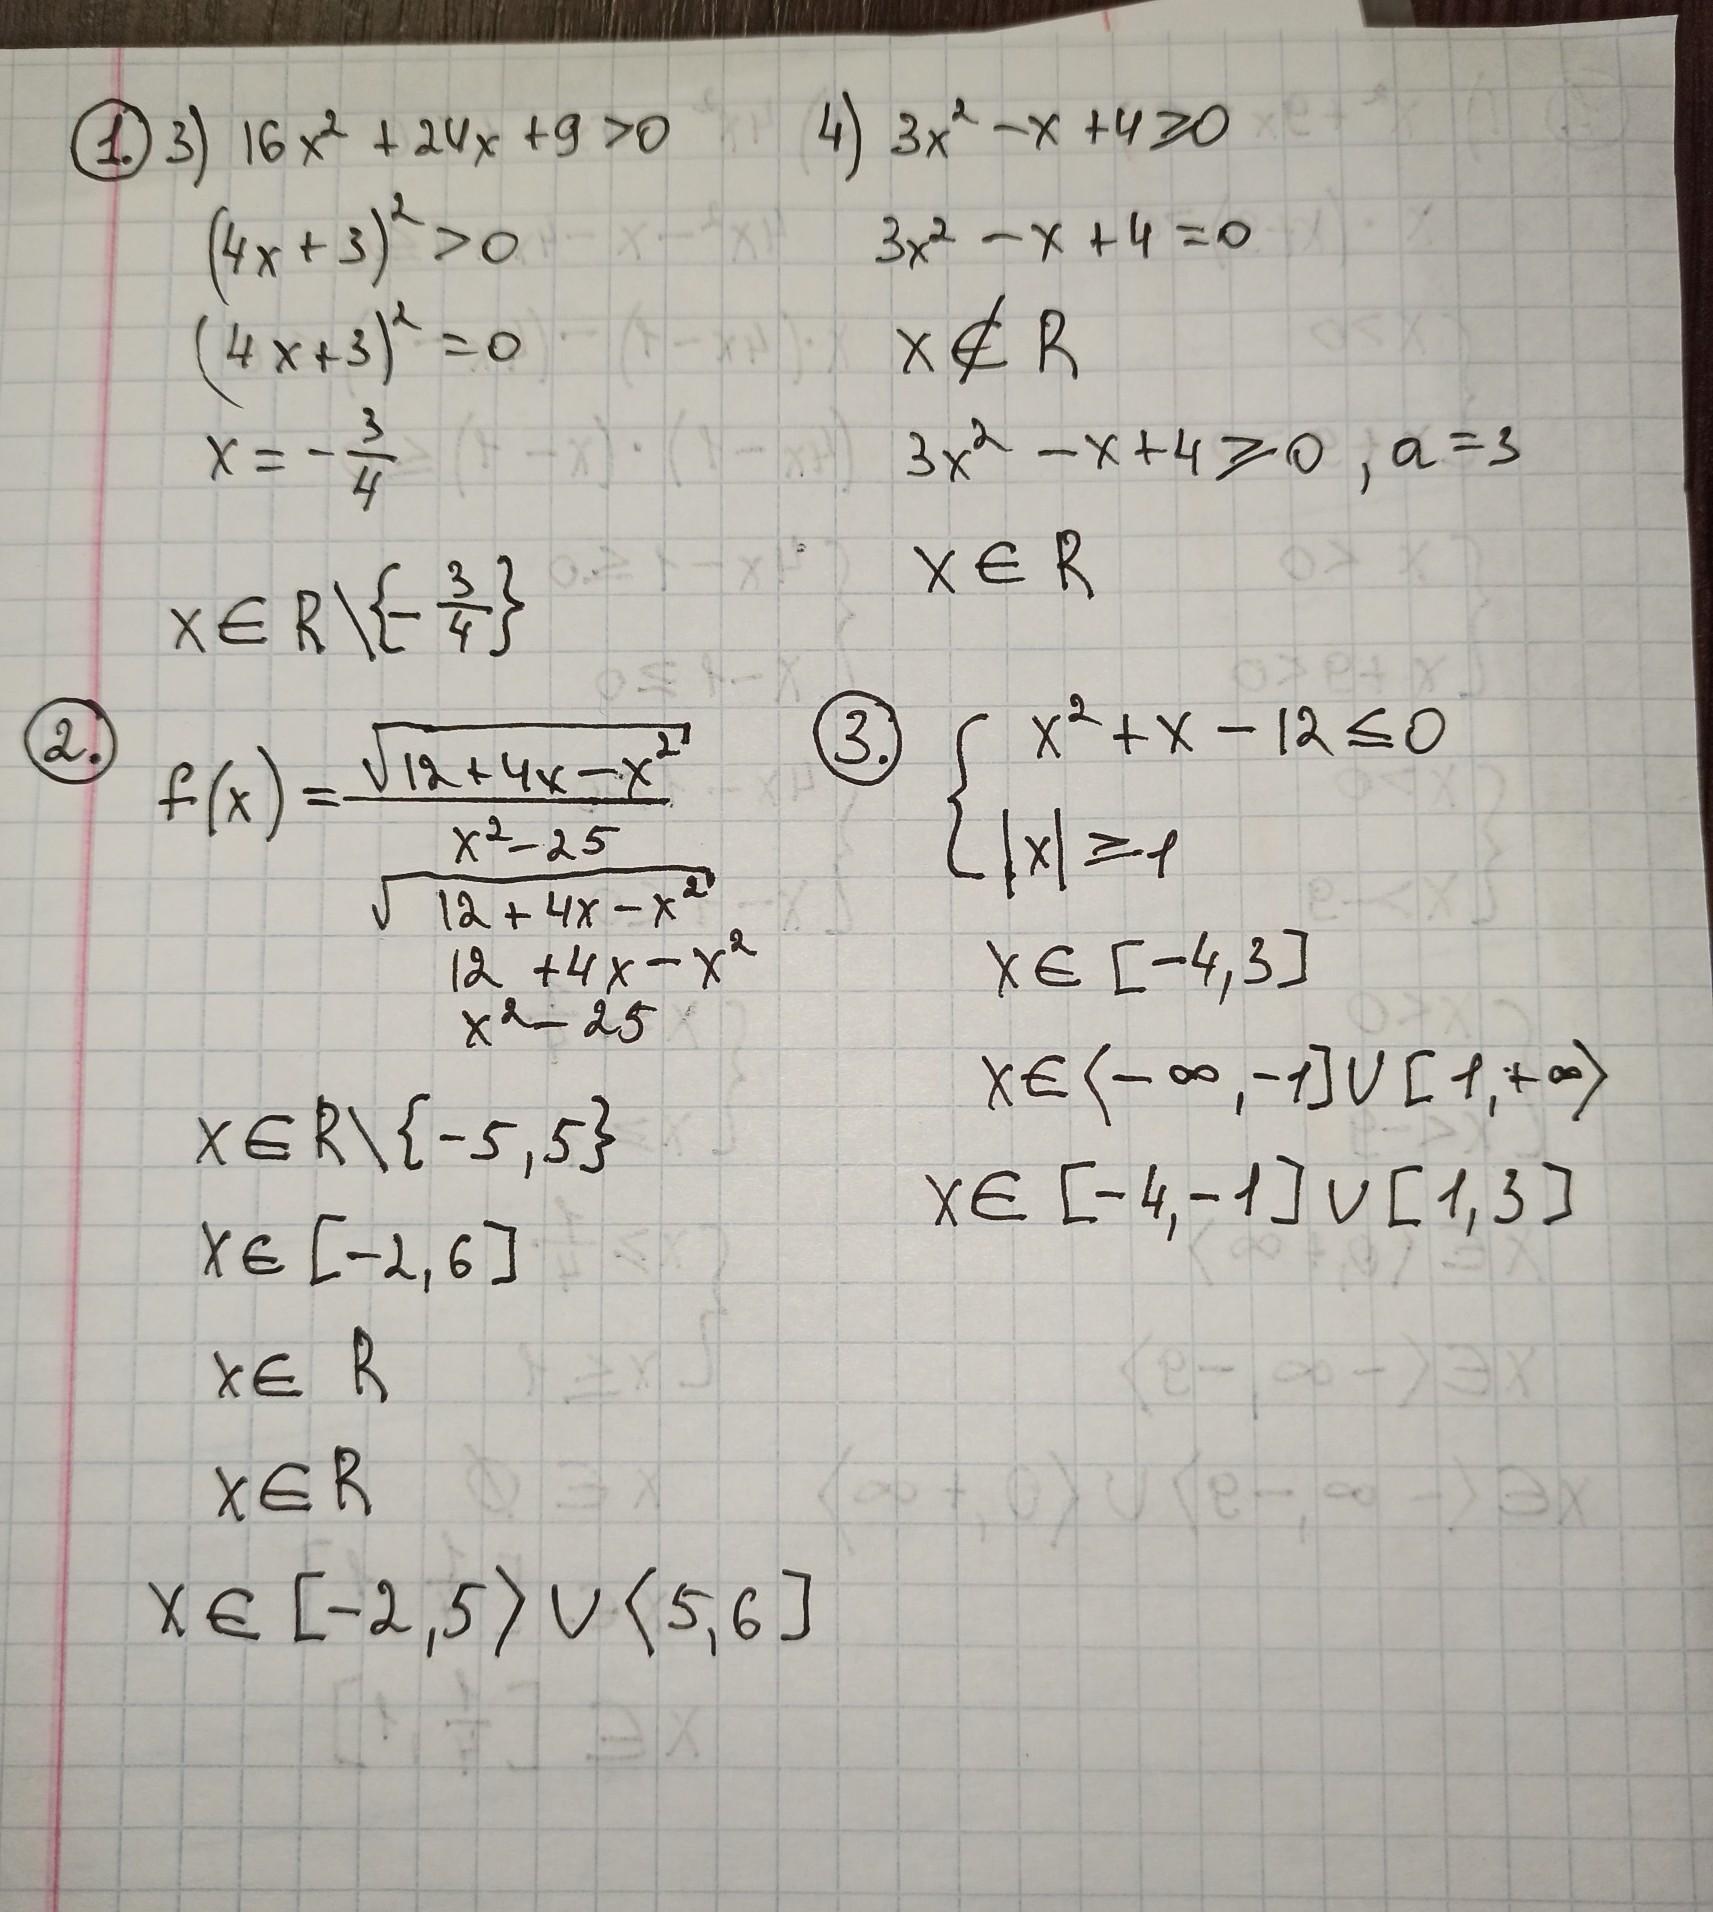 1. 3) 16x² + 24x + 9 > 0
(4x + 3)² > 0
(4x + 3)² = 0
x = -3/4
x ∈ R \ {-3/4}
4) 3x² - x + 4 ⩾ 0
3x² - x + 4 = 0
x ∉ R
3x² - x + 4 ⩾ 0, a = 3
x ∈ R
2. f(x) = √(12 + 4x - x²) / (x² - 25)
√(12 + 4x - x²)
12 + 4x - x²
x² - 25
x ∈ R \ {-5, 5}
x ∈ [-2, 6]
x ∈ R
x ∈ R
x ∈ [-2, 5⟩ ∪ ⟨5, 6]
3. { x² + x - 12 ≤ 0
|x| ⩾ 1
x ∈ [-4, 3]
x ∈ ⟨-∞, -1] ∪ [1, +∞⟩
x ∈ [-4, -1] ∪ [1, 3]